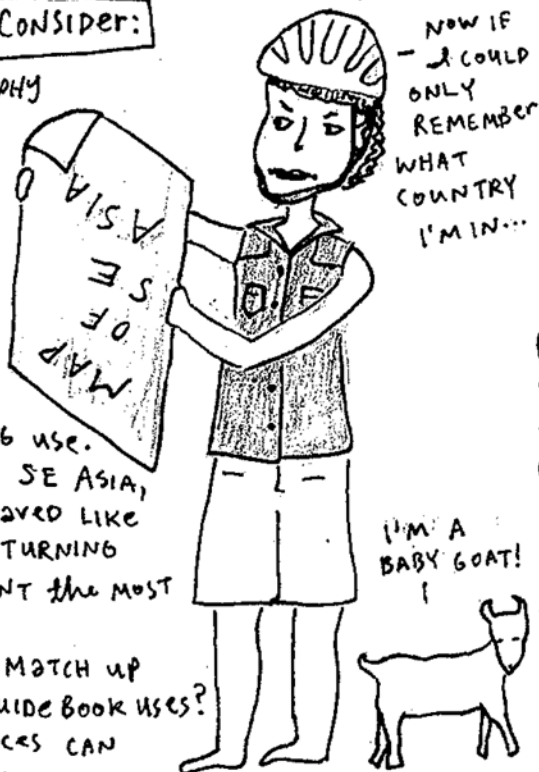 CONSIDER:
PHY
NOW IF
I COULD
ONLY
REMEMBER
WHAT
COUNTRY
I'M IN...
MAP
OF
SE
ASIA
G USE.
SE ASIA,
AVED LIKE
TURNING
NT the MOST
MATCH UP
UIDE BOOK USES?
CES CAN
I'M A
BABY GOAT!